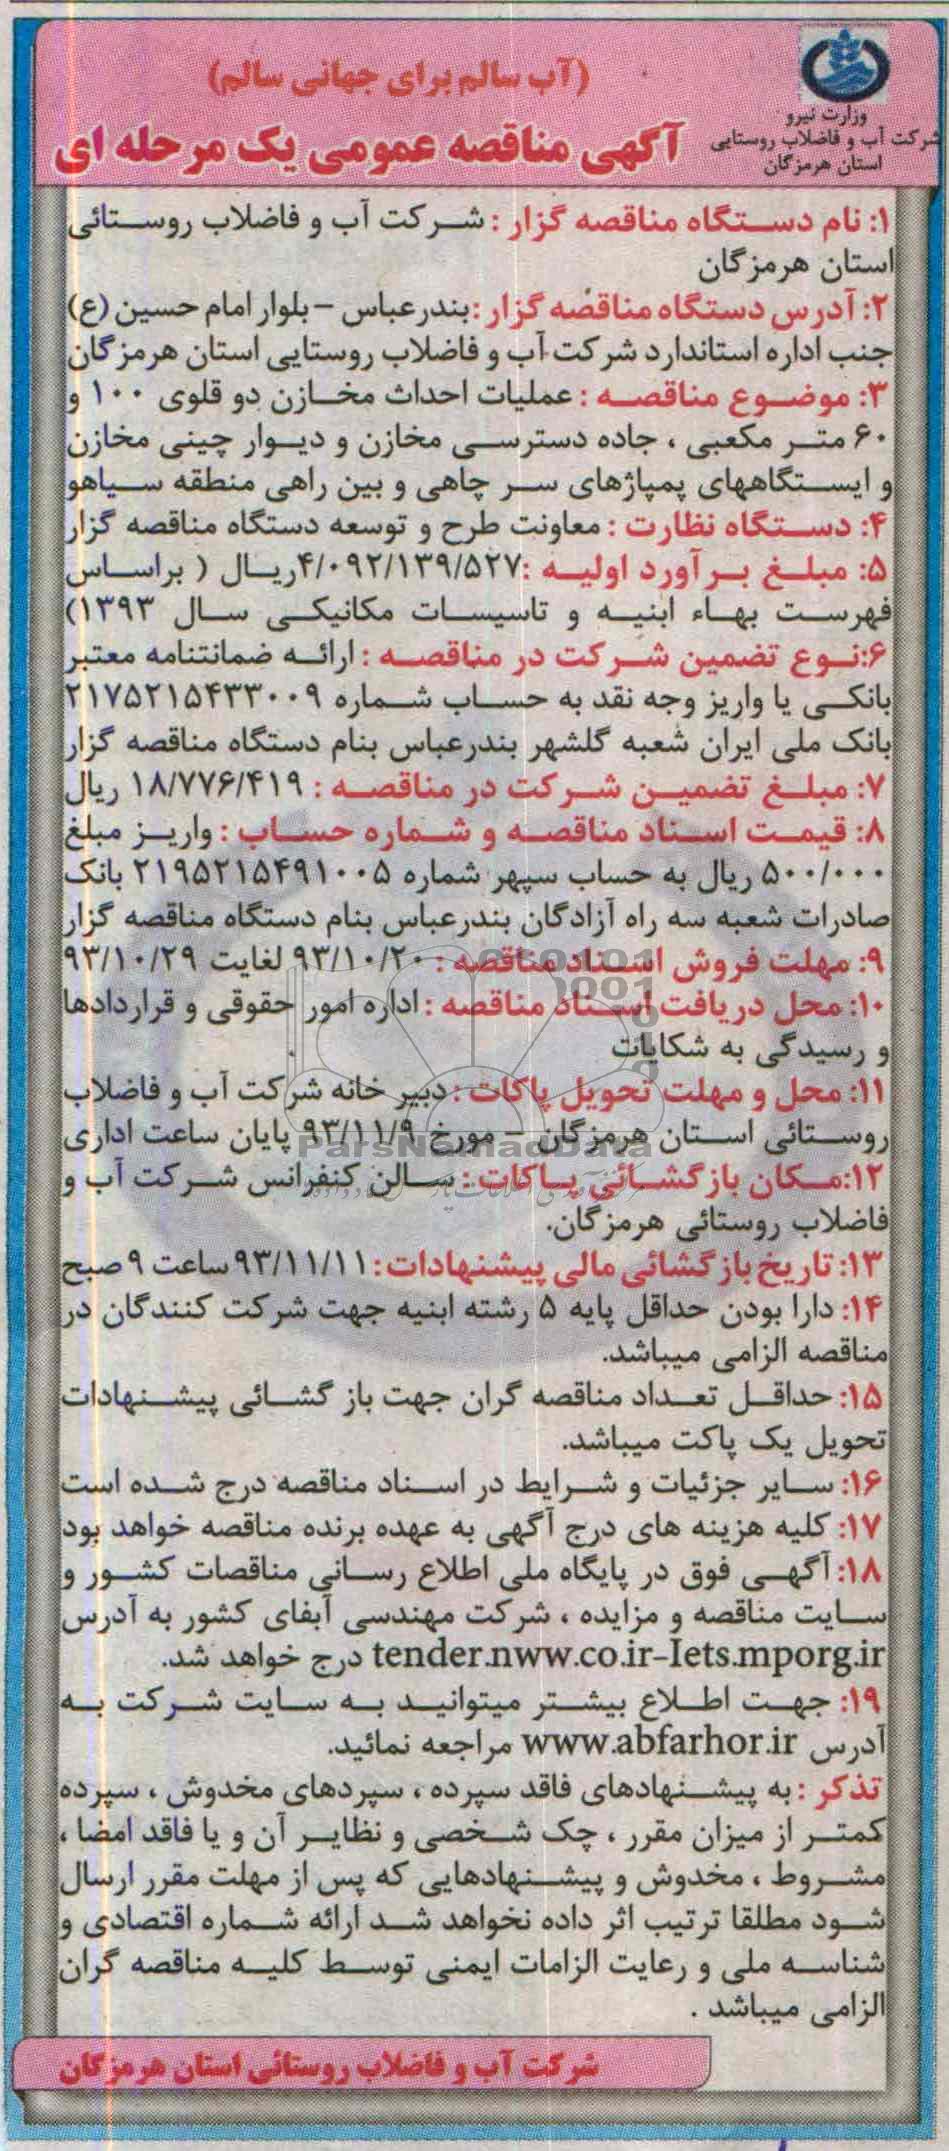 (آب سالم برای جهانی سالم)
وزارت نیرو
شرکت آب و فاضلاب روستایی
استان هرمزگان
آگهی مناقصه عمومی یک مرحله ای
۱: نام دستگاه مناقصه گزار : شرکت آب و فاضلاب روستائی
استان هرمزگان
۲: آدرس دستگاه مناقصه گزار :بندرعباس – بلوار امام حسین (ع)
جنب اداره استاندارد شرکت آب و فاضلاب روستایی استان هرمزگان
۳: موضوع مناقصه : عملیات احداث مخازن دو قلوی ۱۰۰ و
۶۰ متر مکعبی ، جاده دسترسی مخازن و دیوار چینی مخازن
و ایستگاههای پمپاژهای سر چاهی و بین راهی منطقه سیاهو
۴: دستگاه نظارت : معاونت طرح و توسعه دستگاه مناقصه گزار
۵: مبلغ بر آورد اولیه :۴/۰۹۲/۱۳۹/۵۲۷ریال ( براساس
فهرست بهاء ابنیه و تاسیسات مکانیکی سال ۱۳۹۳)
۶:نوع تضمین شرکت در مناقصه : ارائه ضمانتنامه معتبر
بانکی یا واریز وجه نقد به حساب شماره ۲۱۷۵۲۱۵۴۳۳۰۰۹
بانک ملی ایران شعبه گلشهر بندرعباس بنام دستگاه مناقصه گزار
۷: مبلغ تضمین شرکت در مناقصه : ۱۸/۷۷۶/۴۱۹ ریال
۸: قیمت اسناد مناقصه و شماره حساب : واریز مبلغ
۵۰۰/۰۰۰ ریال به حساب سپهر شماره ۲۱۹۵۲۱۵۴۹۱۰۰۵ بانک
صادرات شعبه سه راه آزادگان بندرعباس بنام دستگاه مناقصه گزار
۹: مهلت فروش اسناد مناقصه : ۹۳/۱۰/۲۰ لغایت ۹۳/۱۰/۲۹
۱۰: محل دریافت اسناد مناقصه : اداره امور حقوقی و قراردادها
و رسیدگی به شکایات
۱۱: محل و مهلت تحویل پاکات : دبیر خانه شرکت آب و فاضلاب
روستائی استان هرمزگان – مورخ ۹۳/۱۱/۹ پایان ساعت اداری
ParsNamadData
۱۲:مکان بازگشائی پاکات : سالن کنفرانس شرکت آب و
فاضلاب روستائی هرمزگان.
۱۳: تاریخ بازگشائی مالی پیشنهادات: ۹۳/۱۱/۱۱ ساعت ۹ صبح
۱۴: دارا بودن حداقل پایه ۵ رشته ابنیه جهت شرکت کنندگان در
مناقصه الزامی میباشد.
۱۵: حداقل تعداد مناقصه گران جهت باز گشائی پیشنهادات
تحویل یک پاکت میباشد.
۱۶: سایر جزئیات و شرایط در اسناد مناقصه درج شده است
۱۷: کلیه هزینه های درج آگهی به عهده برنده مناقصه خواهد بود
۱۸: آگهی فوق در پایگاه ملی اطلاع رسانی مناقصات کشور و
سایت مناقصه و مزایده ، شرکت مهندسی آبفای کشور به آدرس
tender.nww.co.ir-Iets.mporg.ir درج خواهد شد.
۱۹: جهت اطلاع بیشتر میتوانید به سایت شرکت به
آدرس www.abfarhor.ir مراجعه نمائید.
تذکر : به پیشنهادهای فاقد سپرده ، سپردهای مخدوش ، سپرده
کمتر از میزان مقرر ، چک شخصی و نظایر آن و یا فاقد امضا ،
مشروط ، مخدوش و پیشنهادهایی که پس از مهلت مقرر ارسال
شود مطلقا ترتیب اثر داده نخواهد شد ارائه شماره اقتصادی و
شناسه ملی و رعایت الزامات ایمنی توسط کلیه مناقصه گران
الزامی میباشد .
شرکت آب و فاضلاب روستائی استان هرمزگان